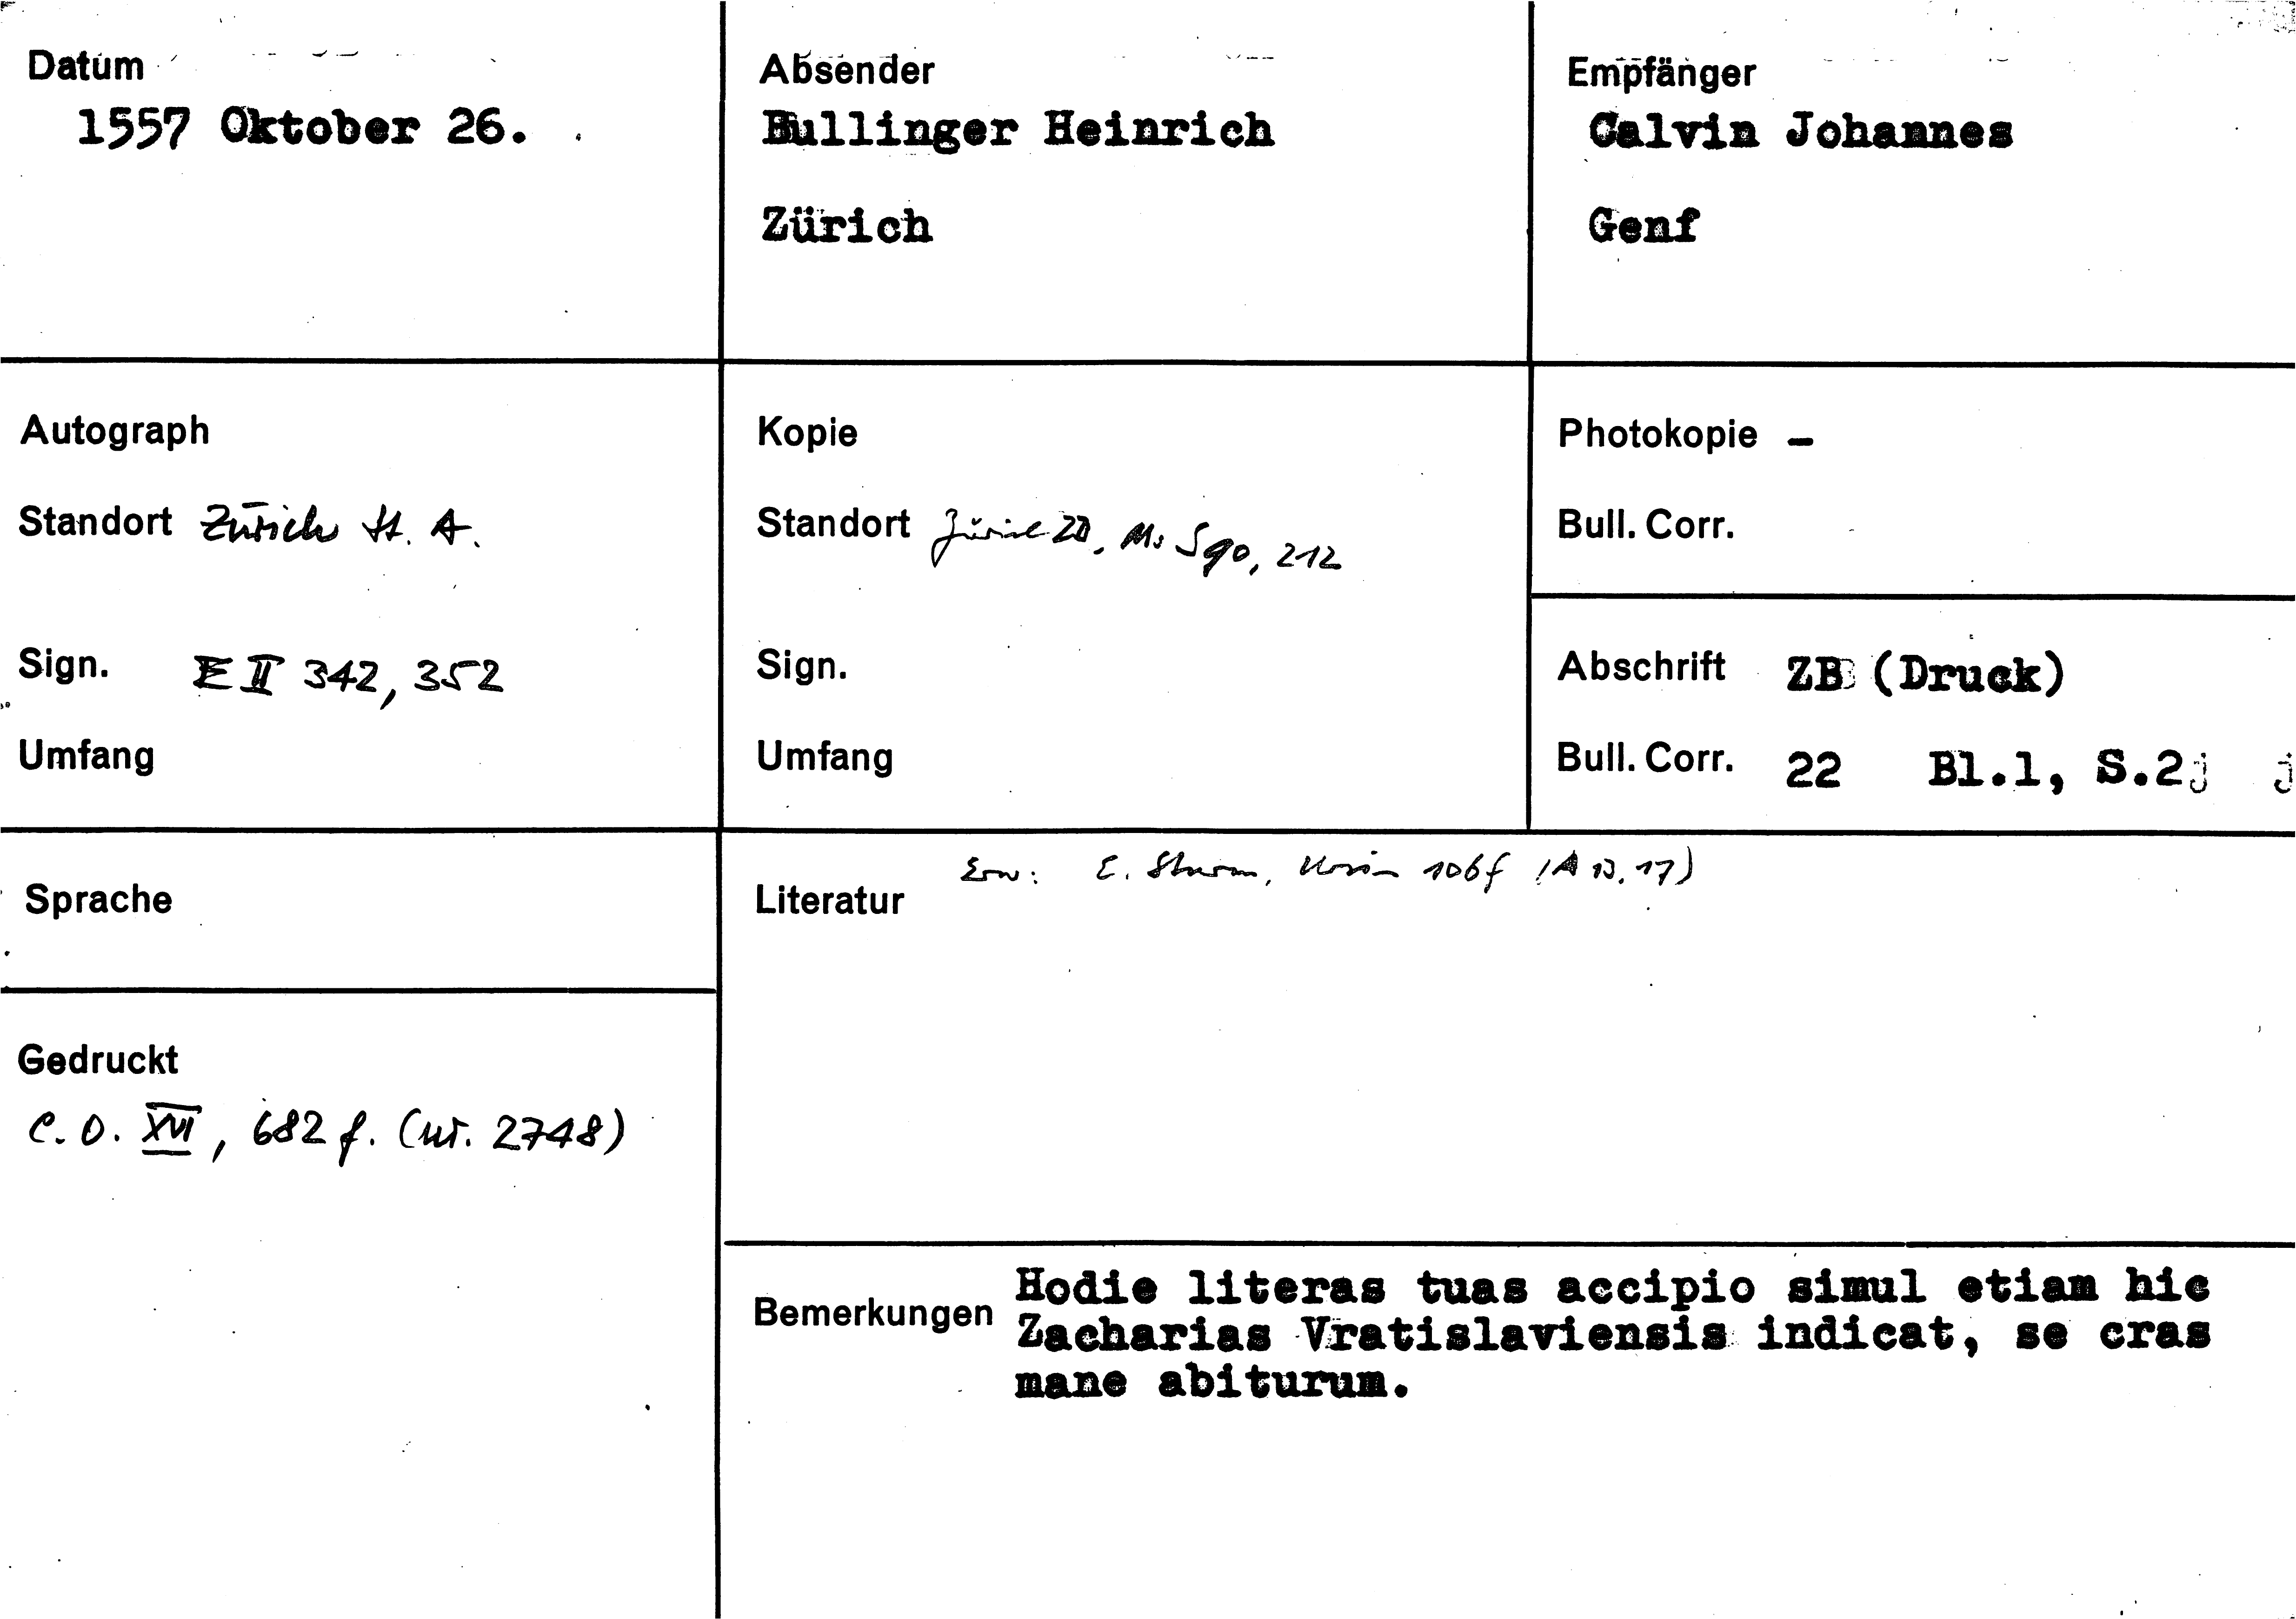 Datum
1557 Oktober 26.
Absender
Bullinger Heinrich
Zürich
Empfänger
Calvin Johannes
Genf
Autograph
Standort Zürich St. A.
Sign. E II 342, 352
Umfang
Kopie
Standort Zürich ZB, Ms S 90, 212
Sign.
Umfang
Photokopie -
Bull. Corr.
Abschrift ZB (Druck)
Bull. Corr. 22 Bl.1, S.2j j
Sprache
Gedruckt
C. O. XVI, 682 f. (nr. 2748)
Literatur
Erw: E. Sturm, Ursin 106f (A 13, 17)
Bemerkungen
Hodie literas tuas accipio simul etiam hic
Zacharias Vratislaviensis indicat, se cras
mane abiturum.